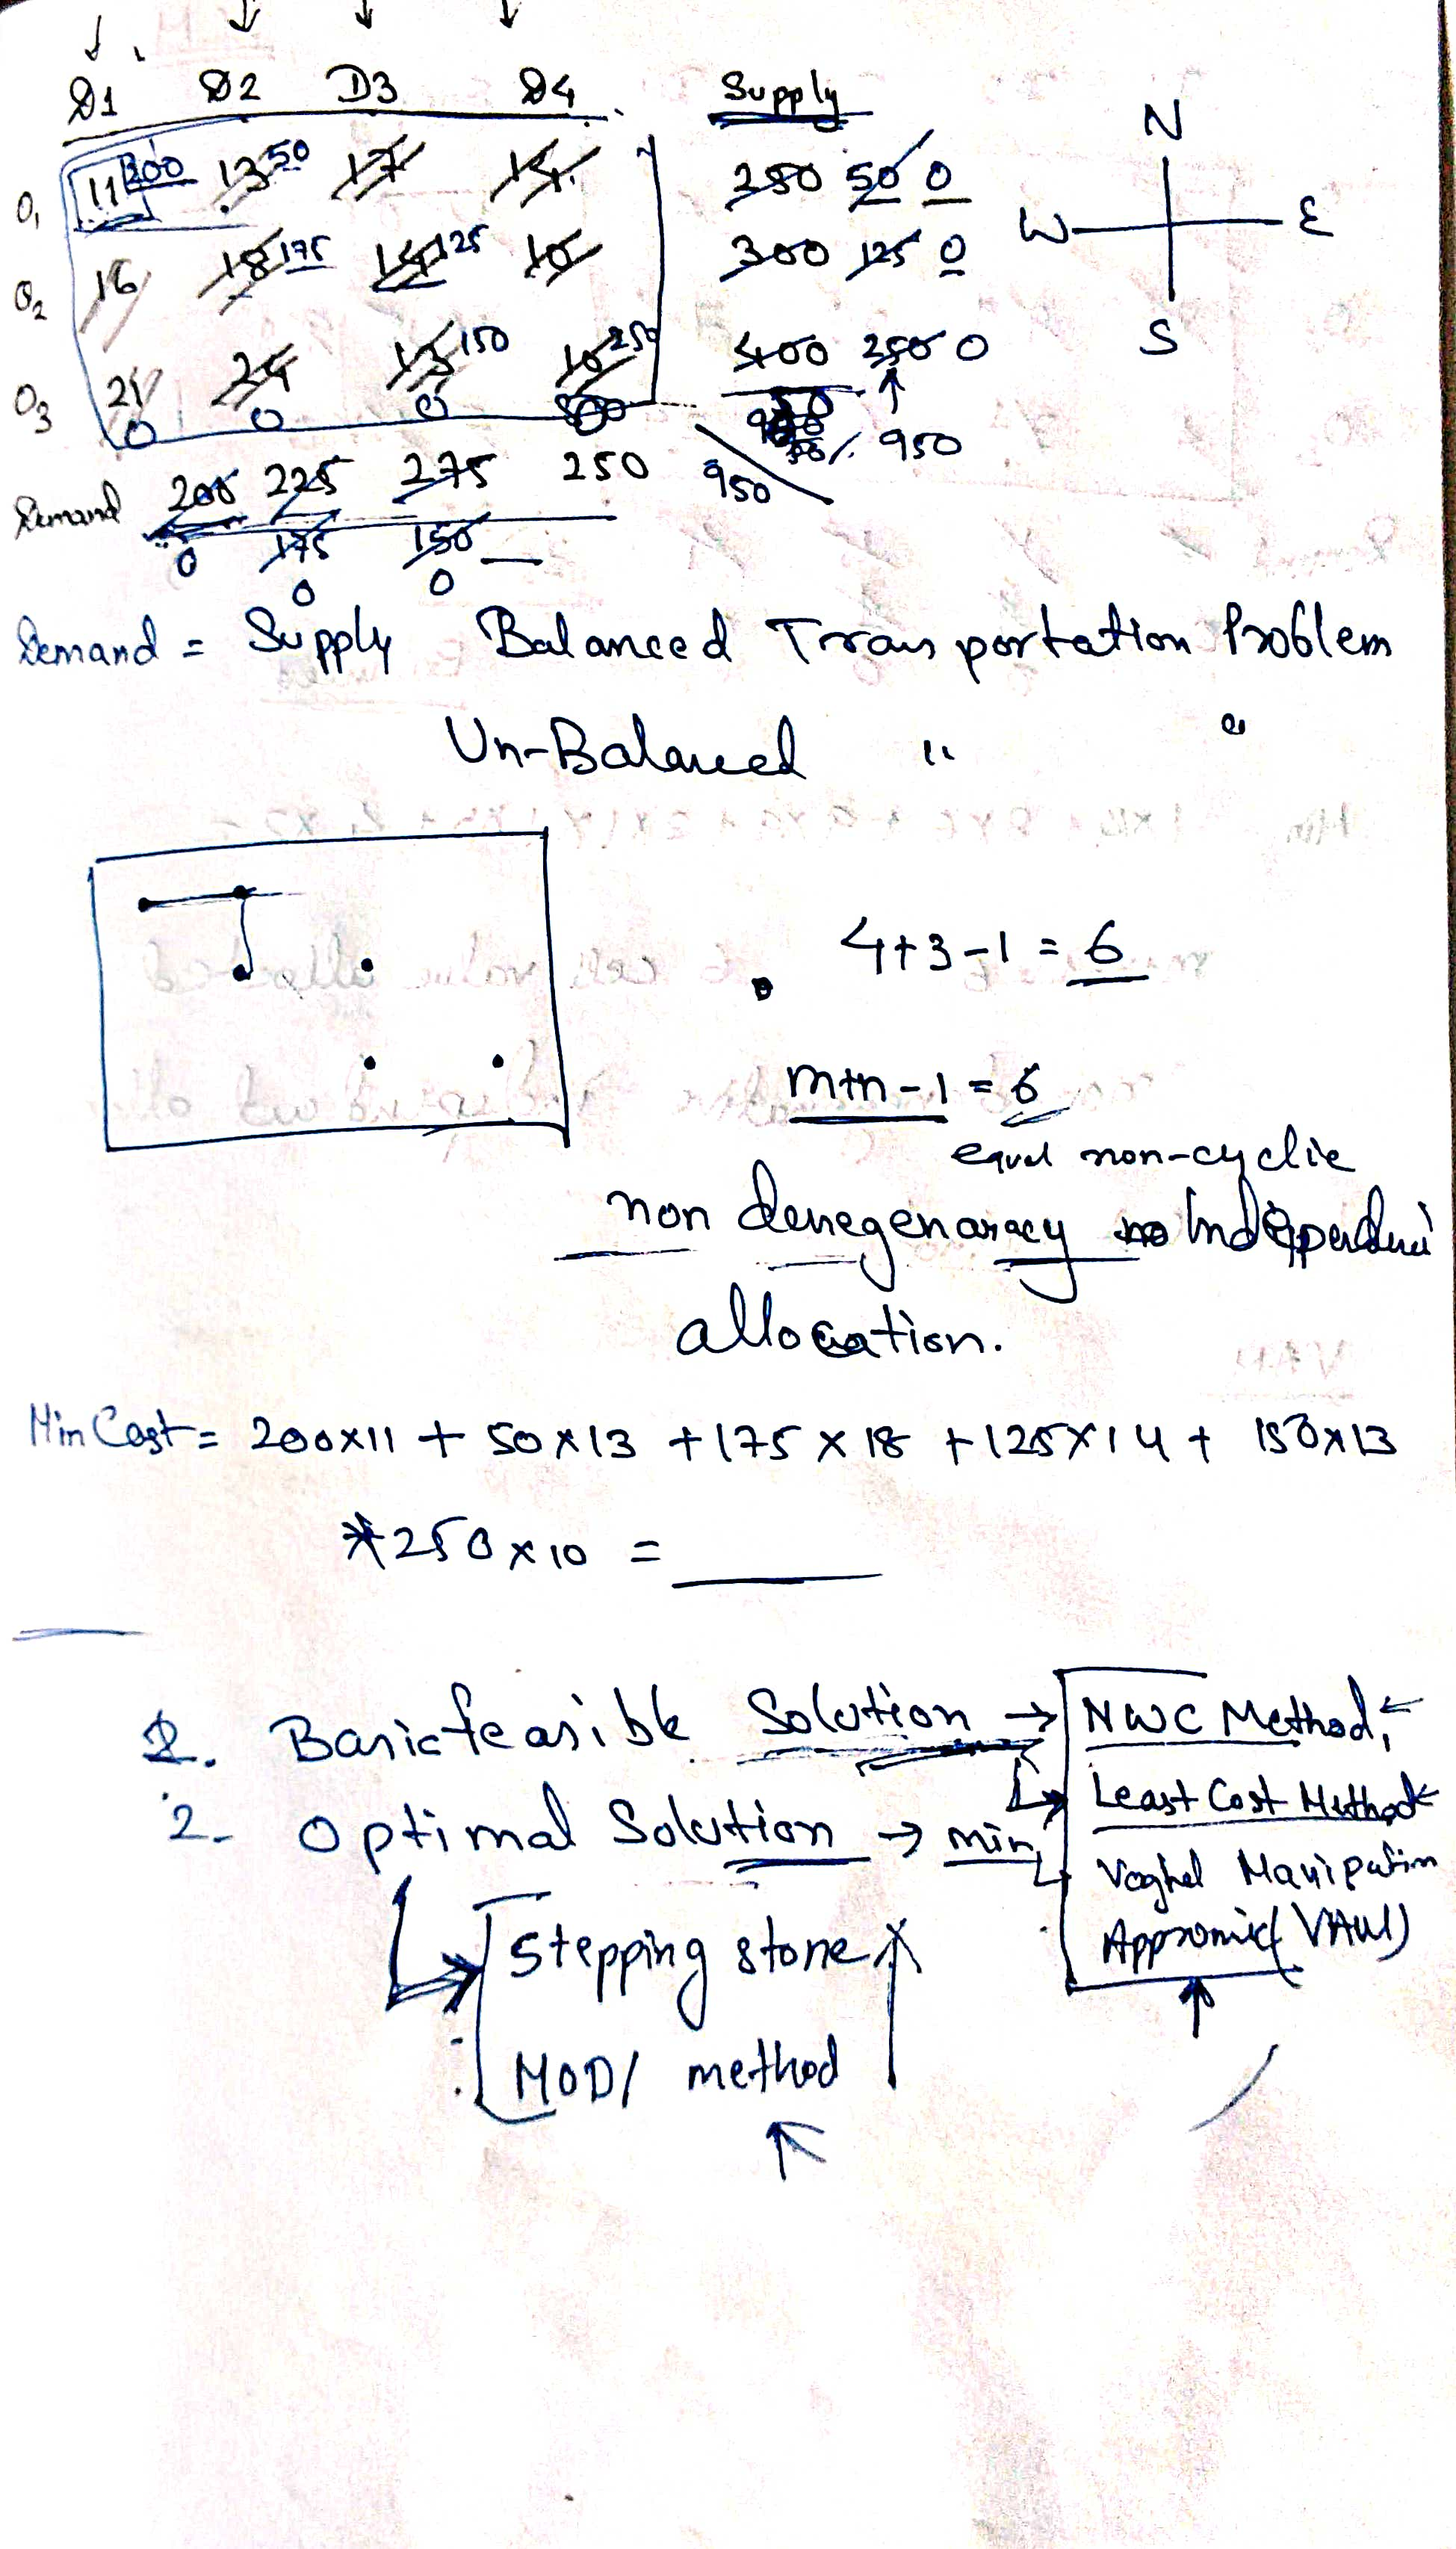 D1 D2 D3 D4 Supply
O1 11 200 13 50 17 14 250 50 0
O2 16 18 175 14 125 10 300 125 0
O3 21 24 13 150 10 250 400 250 0
0 0 0
Demand 200 225 275 250 950 950
0 175 150
0 0
N
W E
S
Demand = Supply Balanced Transportation Problem
Un-Balanced " "
4+3-1 = 6
m+n-1 = 6
equal non-cyclic
non denegenaracy Independent
allocation.
Min Cost = 200x11 + 50x13 + 175x18 + 125x14 + 150x13
*250x10 =
1. Basic feasible Solution → NWC Method,
Least Cost Method
2- Optimal Solution → min
Voghel
Appromix (VAM)
Stepping stone
MODI method